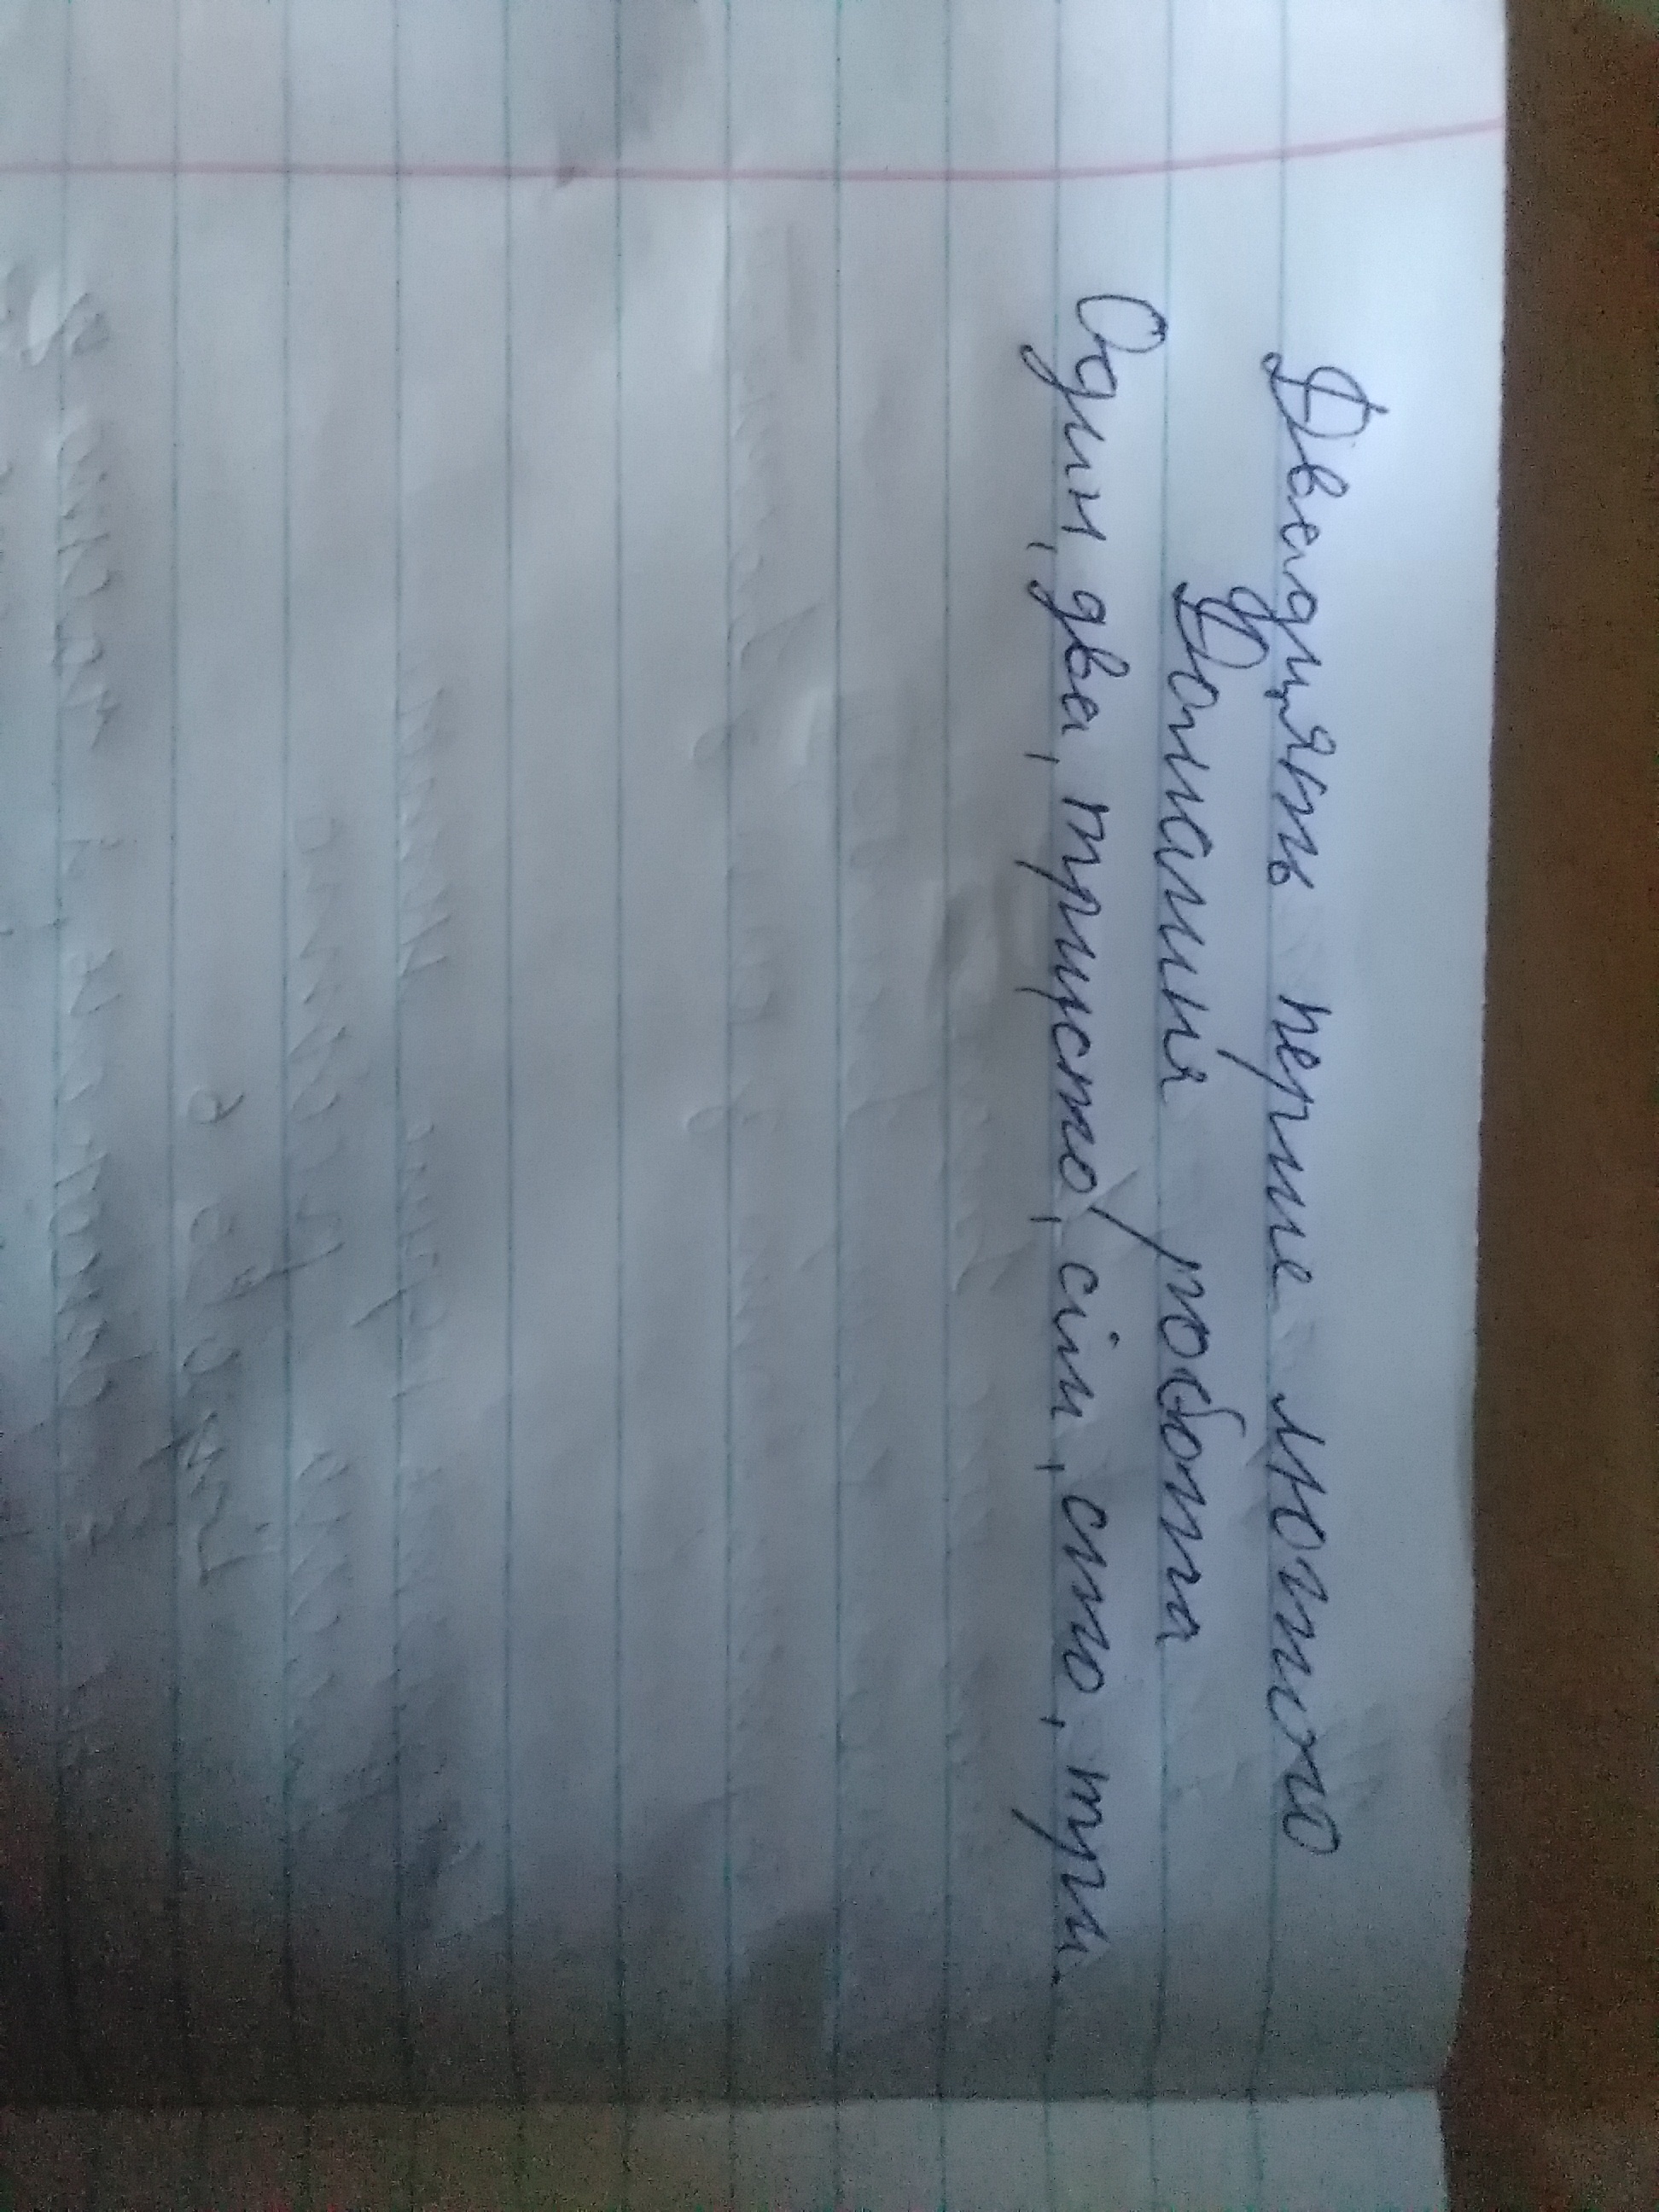 Двадцять перше лютого
Домашня робота
Один, два, тринсто, сім, сто, три.